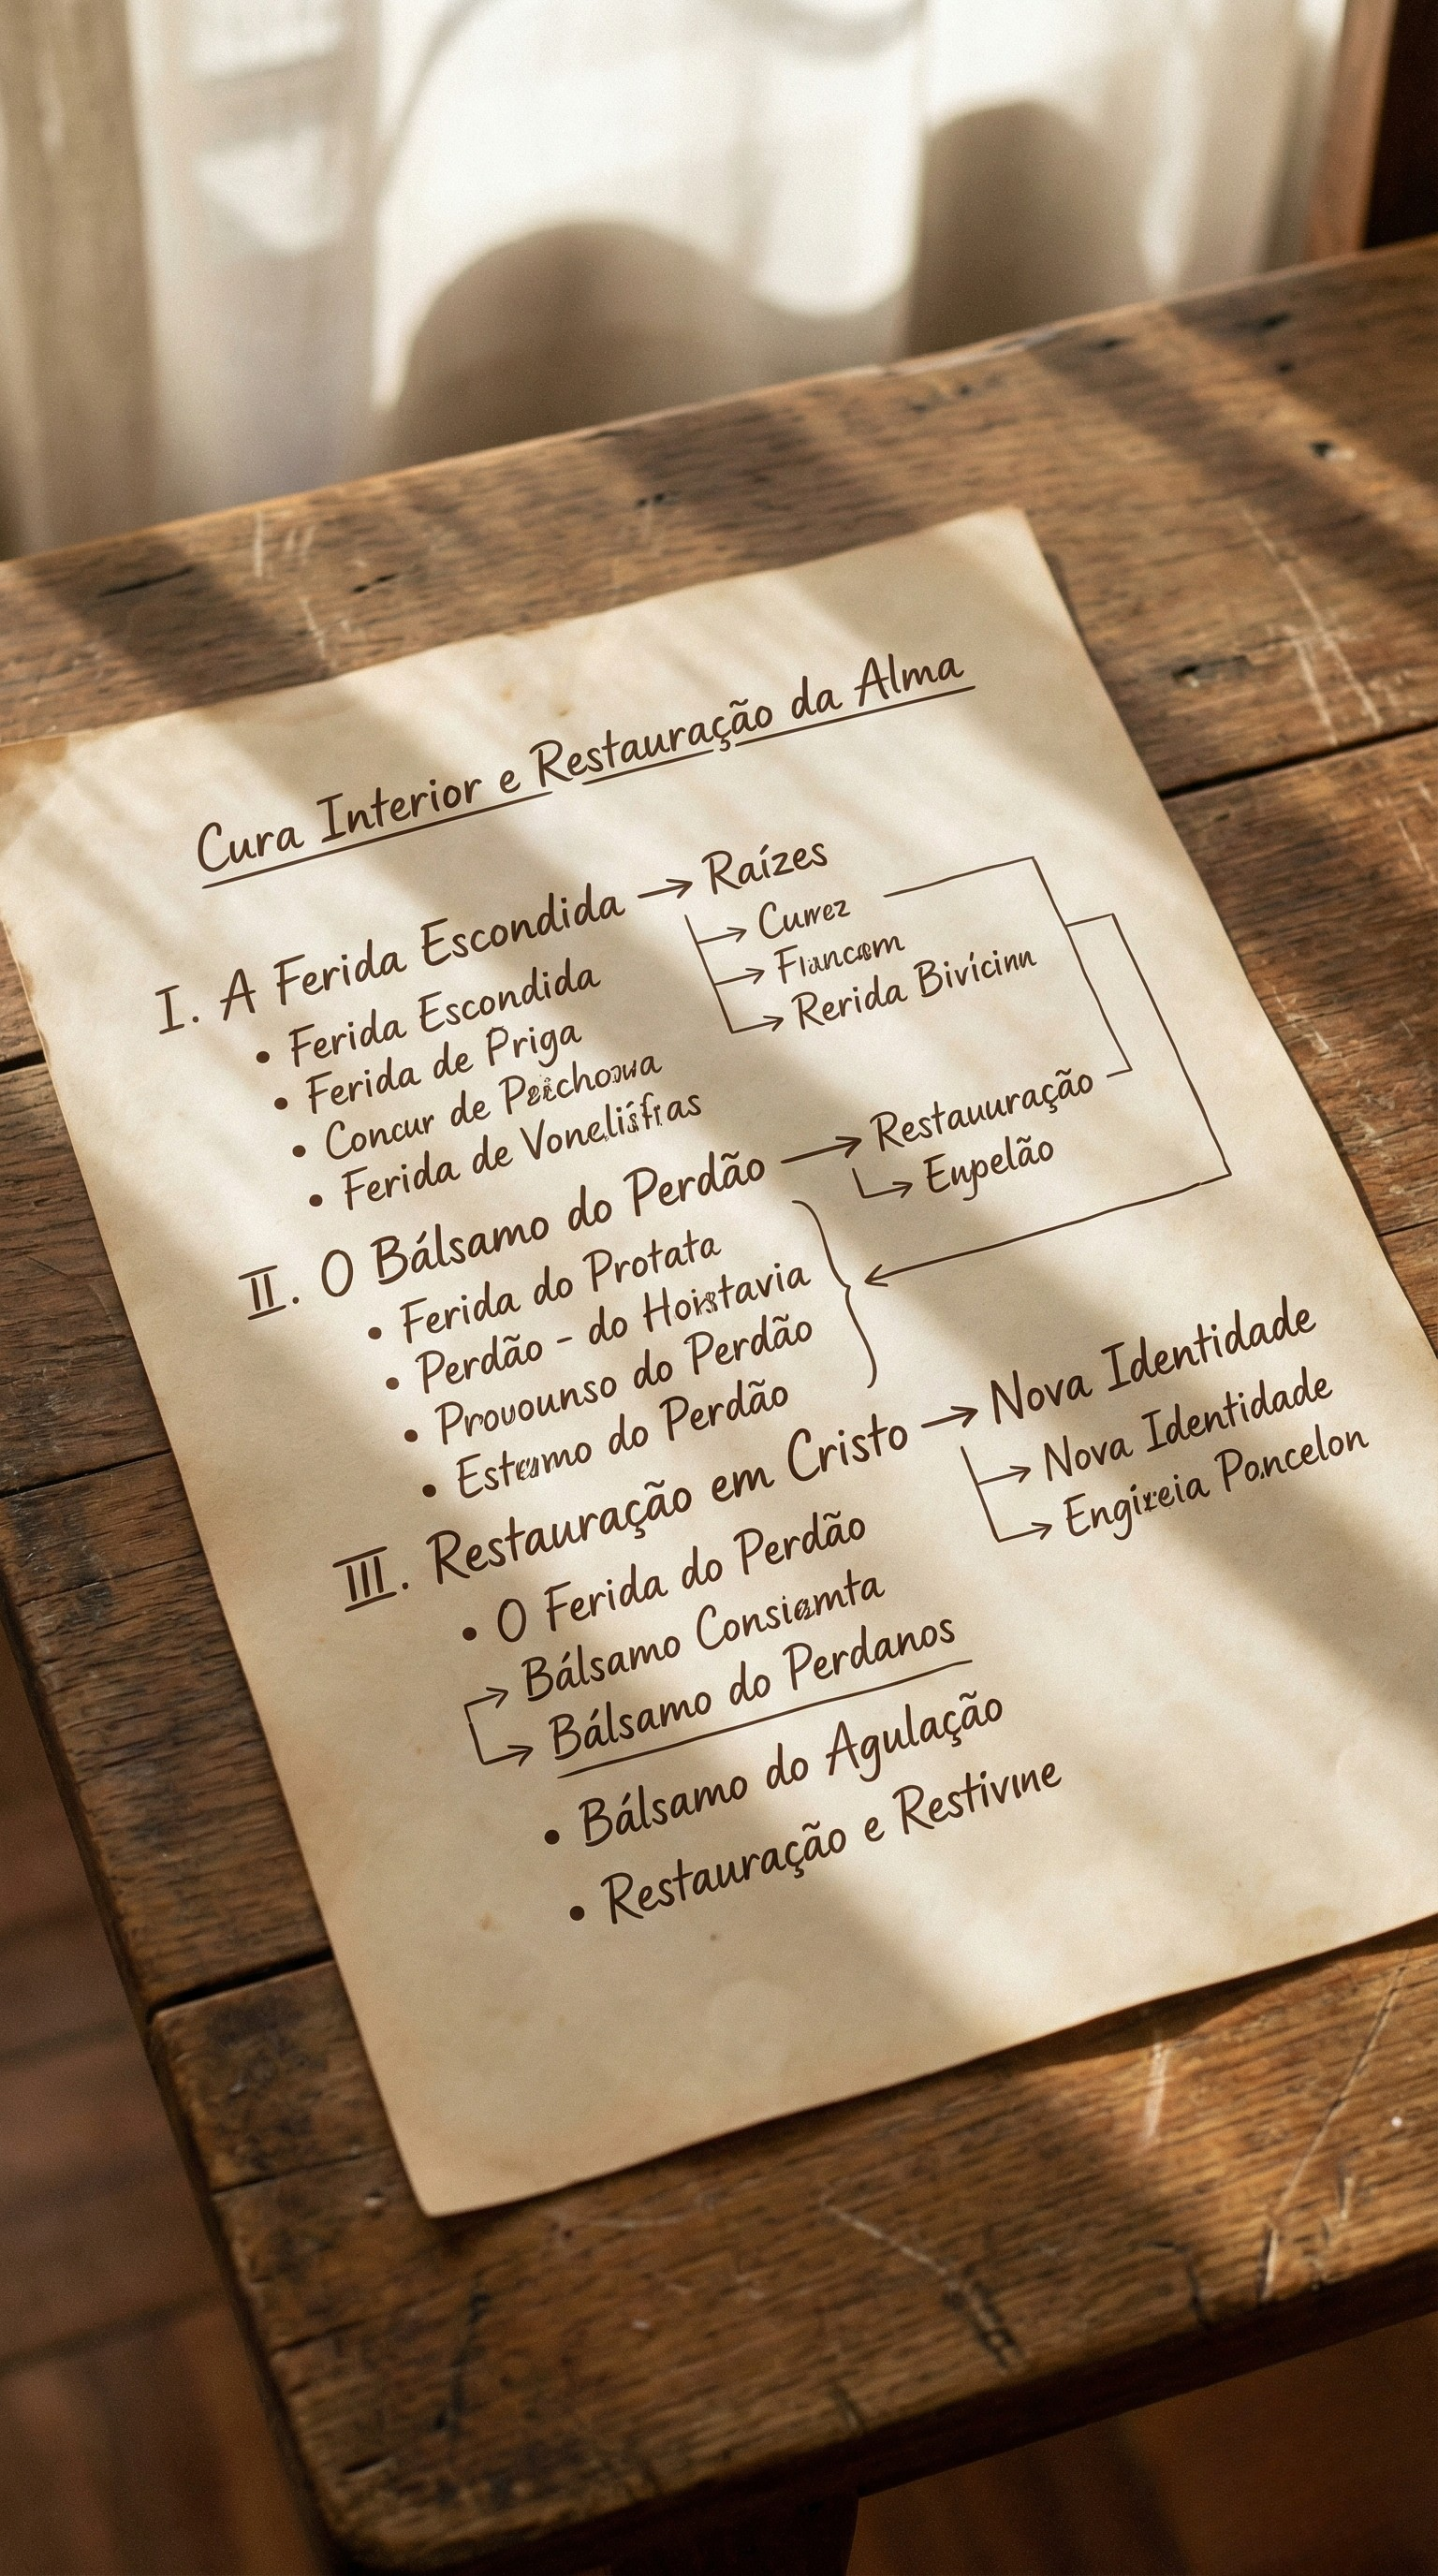 Cura Interior e Restauração da Alma
I. A Ferida Escondida → Raízes
→ Curwez
→
→ Rerida
• Ferida Escondida
• Ferida de Priga
• Concur de
• Ferida de
II. O Bálsamo do Perdão → Restauuração
→ Eupelão
• Ferida do Protata
• Perdão - do
• Prouounso do Perdão
• do Perdão
III. Restauração em Cristo → Nova Identidade
→ Nova Identidade
→ Poncelon
• O Ferida do Perdão
→ Bálsamo
→ Bálsamo do Perdanos
• Bálsamo do Agulação
• Restauração e Restivine